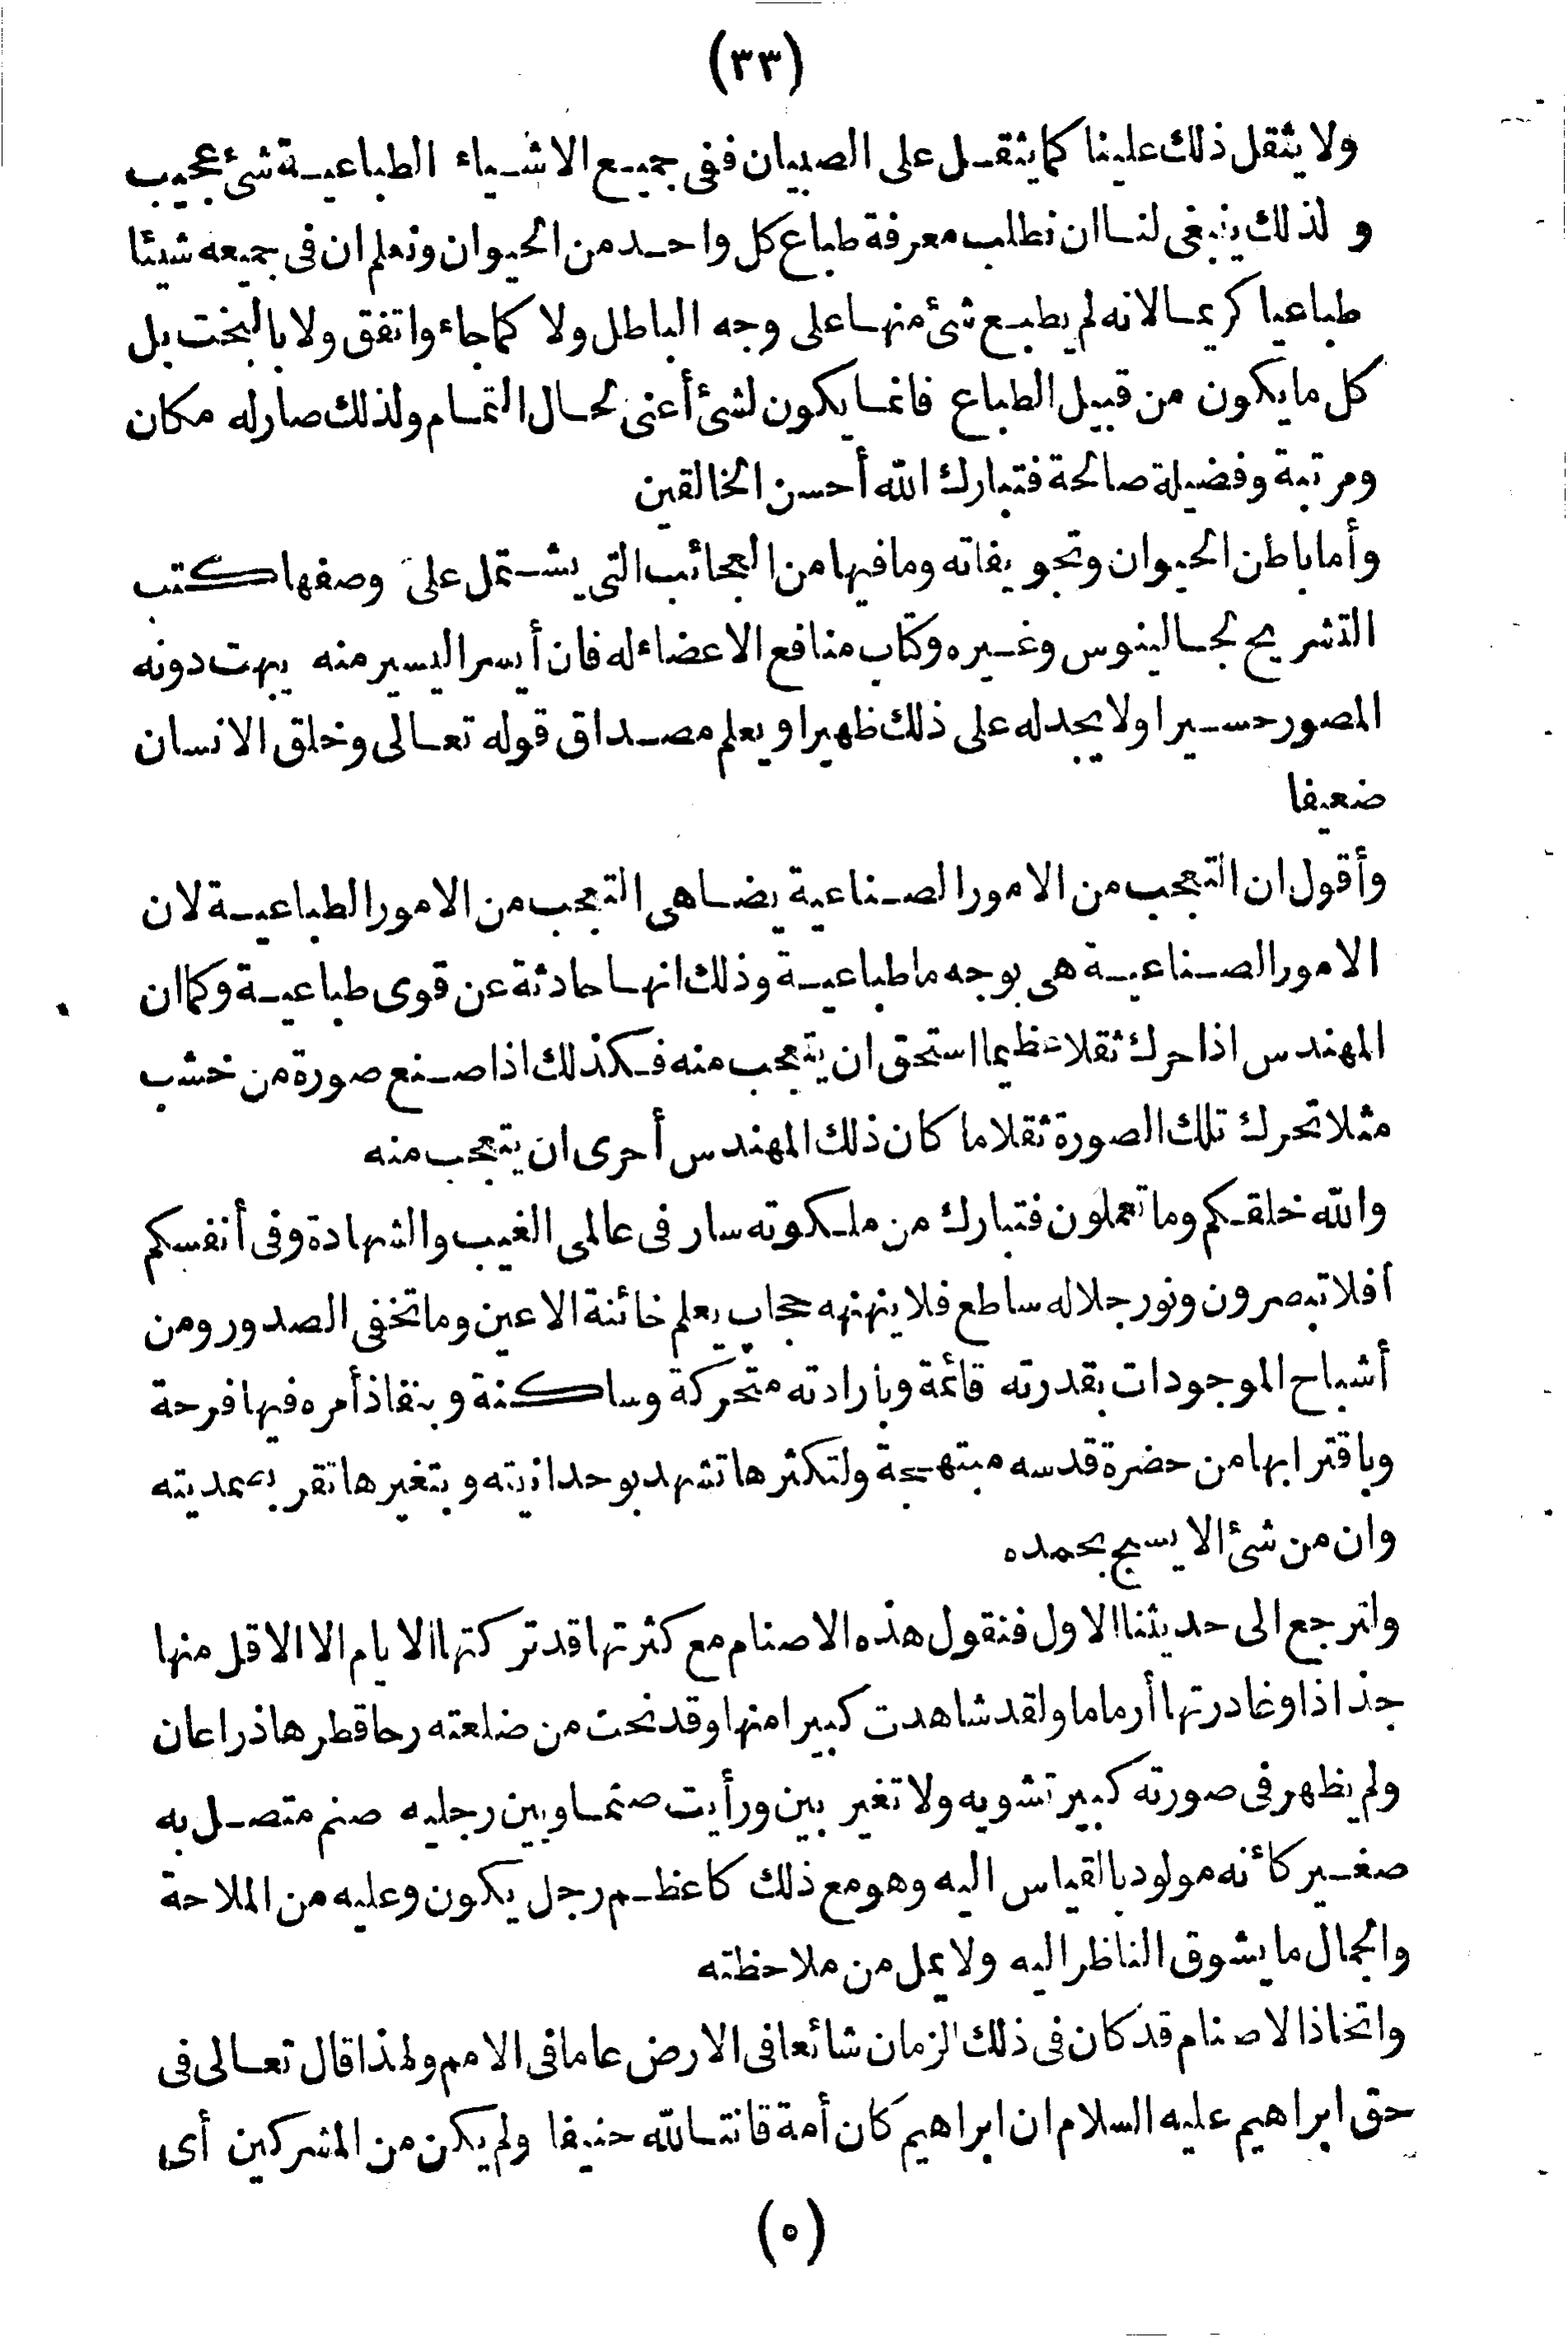 (٣٣)
ولا يثقل ذلك علينا كما يثقل على الصبيان ففى جميع الاشياء الطباعية شئ عجيب
ولذلك ينبغى لنا ان نطلب معرفة طباع كل واحد من الحيوان ونعلم ان فى جميعه شيئا
طباعيا كريما لانه لم يطبع شئ منها على وجه الباطل ولا كما جاء واتفق ولا بالبخت بل
كل ما يكون من قبيل الطباع فانما يكون لشئ أعنى لحال التمام ولذلك صار له مكان
ومرتبة وفضيلة صالحة فتبارك الله أحسن الخالقين
وأما باطن الحيوان وتجويفاته وما فيها من العجائب التى يشتمل على وصفها كتب
التشريح لجالينوس وغيره وكتاب منافع الاعضاء له فان أيسر اليسير منه يبهت دونه
المصور حسيرا ولا يجد له على ذلك ظهيرا ويعلم مصداق قوله تعالى وخلق الانسان
ضعيفا
وأقول ان التعجب من الامور الصناعية يضاهى التعجب من الامور الطباعية لان
الامور الصناعية هى بوجه ما طباعية وذلك انها حادثة عن قوى طباعية وكما ان
المهندس اذا حرك ثقلا عظيما استحق ان يتعجب منه فكذلك اذا صنع صورة من خشب
مثلا تحرك تلك الصورة ثقلا ما كان ذلك المهندس أحرى ان يتعجب منه
والله خلقكم وما تعملون فتبارك من ملكوته سار فى عالمى الغيب والشهادة وفى أنفسكم
أفلا تبصرون ونور جلاله ساطع فلا ينهنهه حجاب يعلم خائنة الاعين وما تخفى الصدور ومن
أشباح الموجودات بقدرته قائمة وبارادته متحركة وساكنة وبنفاذ أمره فيها فرحة
وباقترابها من حضرة قدسه مبتهجة ولتكثرها تشهد بوحدانيته وبتغيرها تقر بصمديته
وان من شئ الا يسبح بحمده
ولنرجع الى حديثنا الاول فنقول هذه الاصنام مع كثرتها قد تركتها الايام الا الاقل منها
جذاذا وغادرتها أرماما ولقد شاهدت كبيرا منها وقد نحت من ضلعته رحا قطرها ذراعان
ولم يظهر فى صورته كبير تشويه ولا تغير بين ورأيت صنما وبين رجليه صنم متصل به
صغير كأنه مولود بالقياس اليه وهو مع ذلك كاعظم رجل يكون وعليه من الملاحة
والجمال ما يشوق الناظر اليه ولا يمل من ملاحظته
واتخاذ الاصنام قد كان فى ذلك الزمان شائعا فى الارض عاما فى الامم ولهذا قال تعالى فى
حق ابراهيم عليه السلام ان ابراهيم كان أمة قانتا لله حنيفا ولم يكن من المشركين أى
(٥)